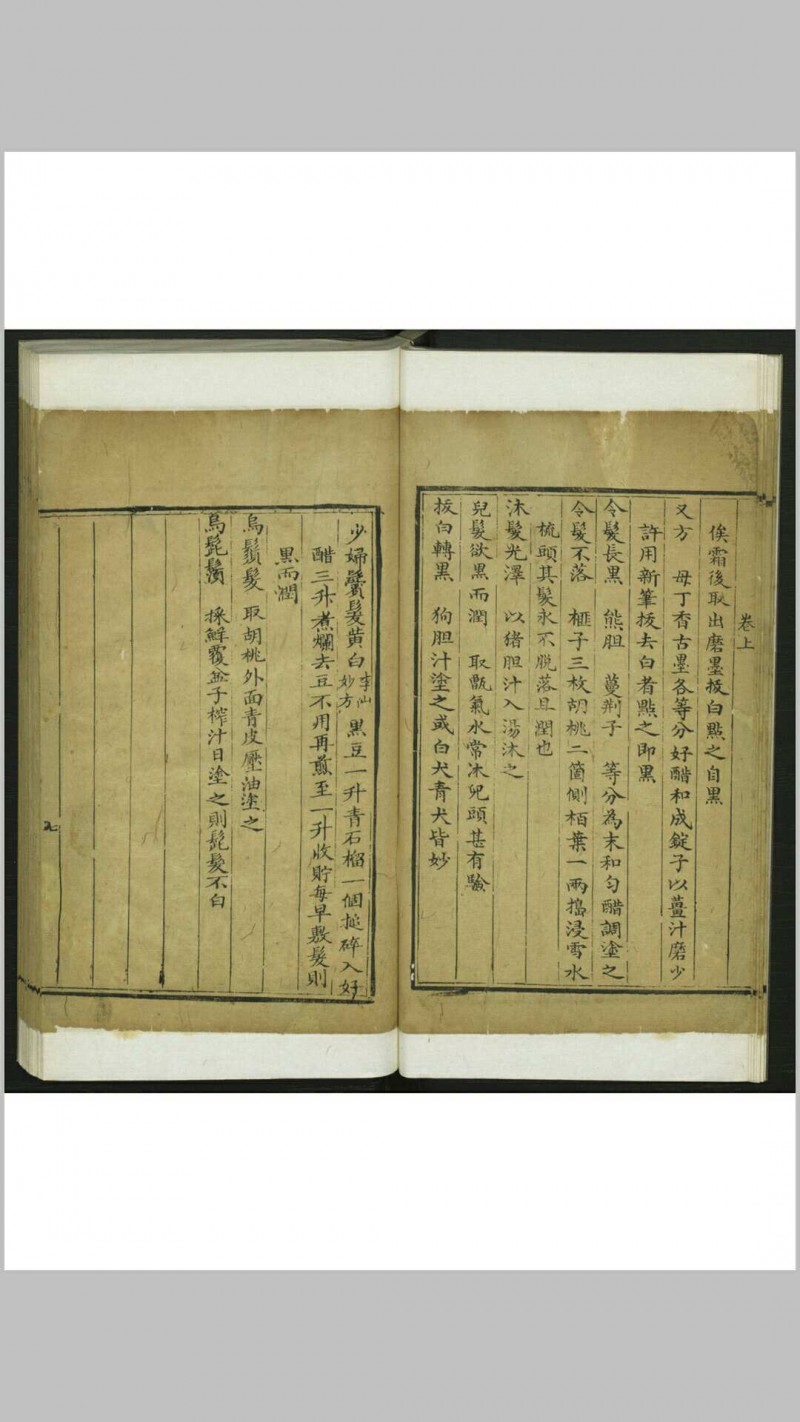 卷上
俟霜後取出磨墨拔白點之自黑
又方　母丁香古墨各等分好醋和成錠子以薑汁磨少
許用新筆拔去白者點之即黑
令髮長黑　熊胆　蔓荆子　等分為末和匀醋調塗之
令髮不落　榧子三枚胡桃二箇側栢葉一兩搗浸雪水
梳頭其髮永不脫落且潤也
沐髮光澤　以猪胆汁入湯沐之
兒髮欲黑而潤　取甑氣水常沐兒頭甚有驗
拔白轉黑　狗胆汁塗之或白犬青犬皆妙
少婦鬢髮黃白李仙妙方黑豆一升青石榴一個搥碎入好
醋三升煮爛去豆不用再煎至一升收貯每早敷髮則
黑而潤
烏鬚髮　取胡桃外面青皮壓油塗之
烏髭鬢　採鮮覆盆子榨汁日塗之則髭髮不白
九